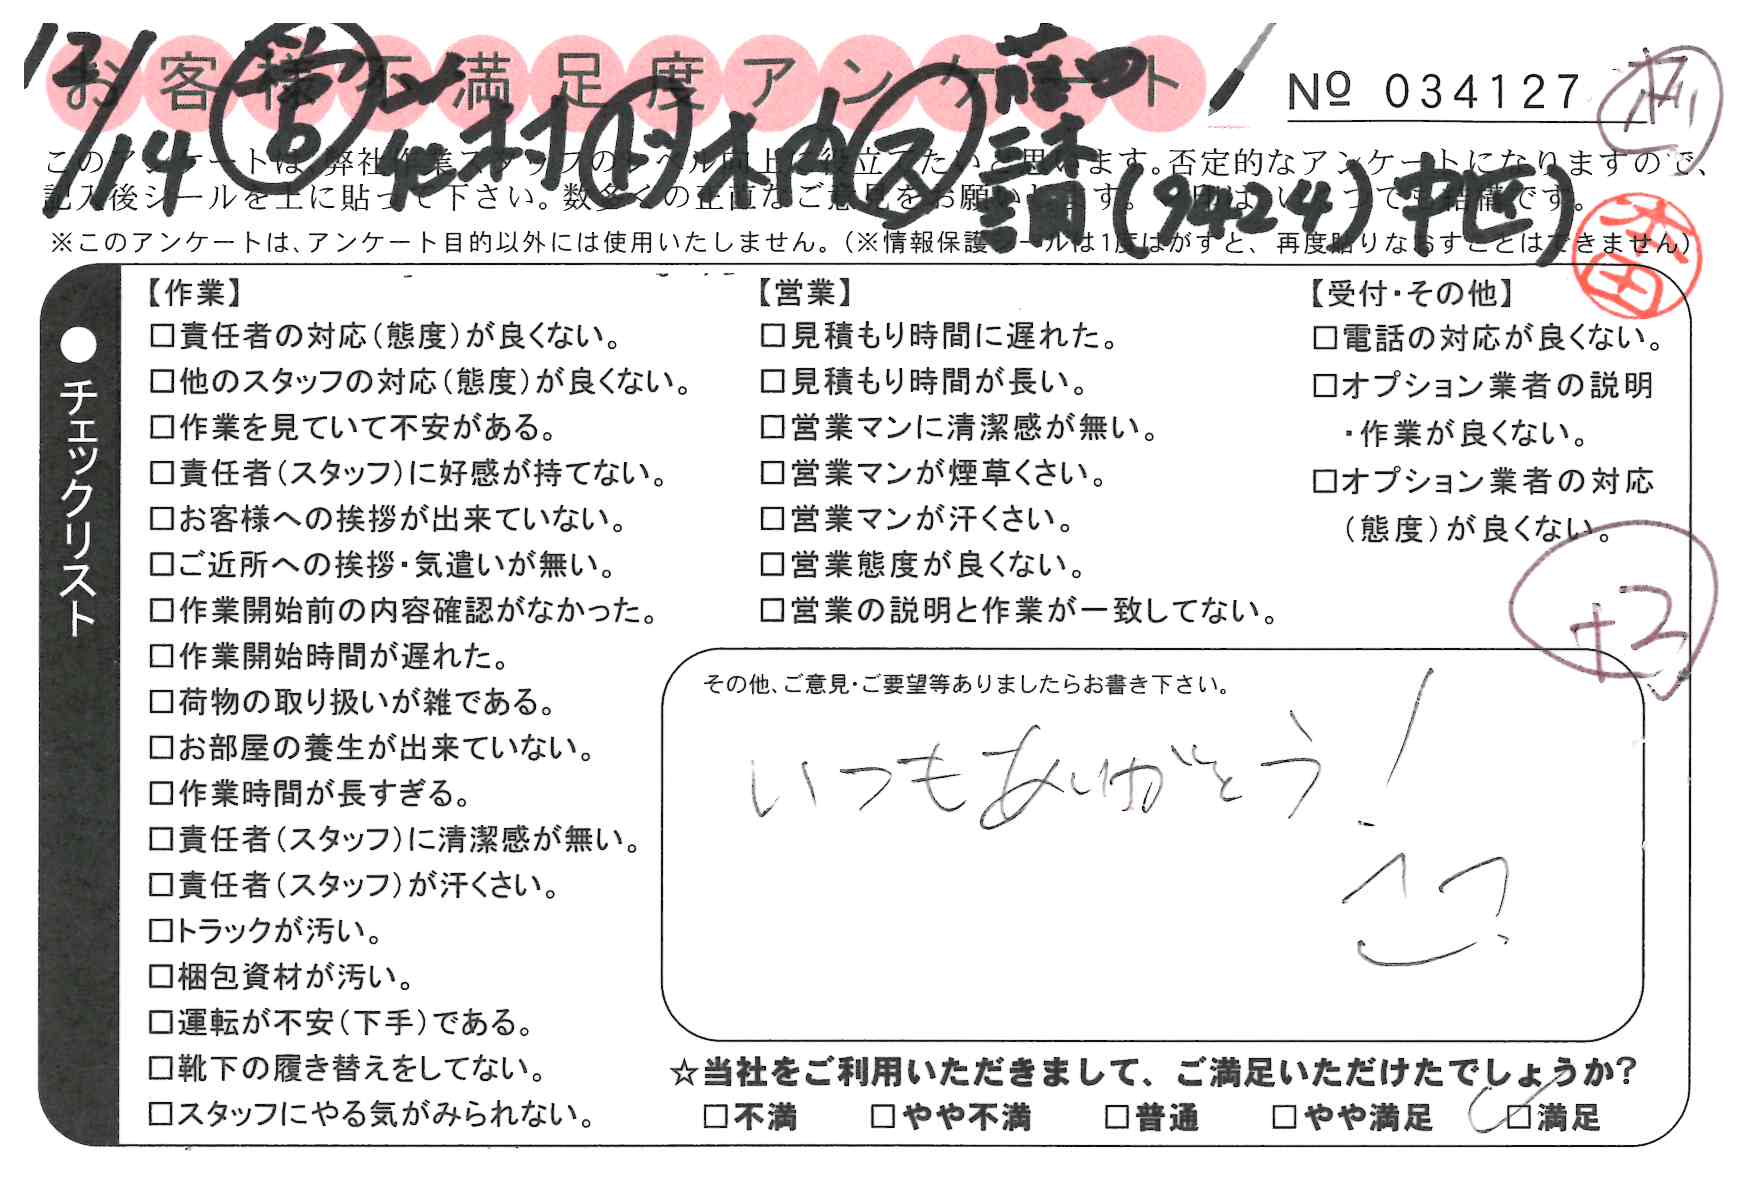 お客様不満足度アンケート
№ 034127
12/14
このアンケートは、弊社作業スタッフのレベル向上に役立てたいと思います。否定的なアンケートになりますので、
記入後シールを上に貼って下さい。数多くの正直なご意見をお願いします。
(9424) 中区
※このアンケートは、アンケート目的以外には使用いたしません。(※情報保護シールは1度はがすと、再度貼りなおすことはできません)
本田
●チェックリスト
【作業】
□責任者の対応(態度)が良くない。
□他のスタッフの対応(態度)が良くない。
□作業を見ていて不安がある。
□責任者(スタッフ)に好感が持てない。
□お客様への挨拶が出来ていない。
□ご近所への挨拶・気遣いが無い。
□作業開始前の内容確認がなかった。
□作業開始時間が遅れた。
□荷物の取り扱いが雑である。
□お部屋の養生が出来ていない。
□作業時間が長すぎる。
□責任者(スタッフ)に清潔感が無い。
□責任者(スタッフ)が汗くさい。
□トラックが汚い。
□梱包資材が汚い。
□運転が不安(下手)である。
□靴下の履き替えをしてない。
□スタッフにやる気がみられない。
【営業】
□見積もり時間に遅れた。
□見積もり時間が長い。
□営業マンに清潔感が無い。
□営業マンが煙草くさい。
□営業マンが汗くさい。
□営業態度が良くない。
□営業の説明と作業が一致してない。
【受付・その他】
□電話の対応が良くない。
□オプション業者の説明
・作業が良くない。
□オプション業者の対応
(態度)が良くない。
その他、ご意見・ご要望等ありましたらお書き下さい。
いつもありがとう!
☆当社をご利用いただきまして、ご満足いただけたでしょうか?
□不満 □やや不満 □普通 □やや満足 □満足